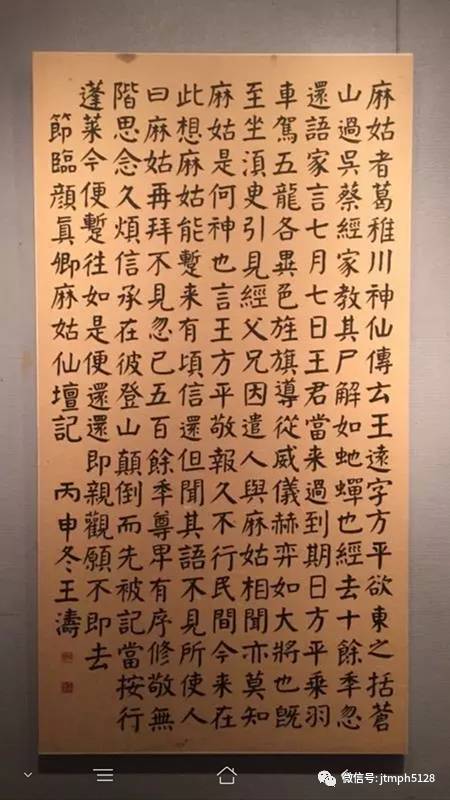 麻姑者葛稚川神仙傳云王遠字方平欲東之括蒼
山過吳蔡經家教其尸解如虵蟬也經去十餘季忽
還語家言七月七日王君當来過到期日方平乗羽
車駕五龍各異色旌旗導從威儀赫弈如大將也旣
至坐湏史引見經父兄因遣人與麻姑相聞亦莫知
麻姑是何神也言王方平敬報久不行民間今来在
此想麻姑能蹔来有頃信還但聞其語不見所使人
曰麻姑再拜不見忽已五百餘季尊卑有序修敬無
階思念久煩信承在彼登山顛倒而先被記當按行
蓬萊今便蹔往如是便還還即親觀願不即去
節臨顔眞卿麻姑仙壇記 丙申冬王濤
微信号: jtmph5128